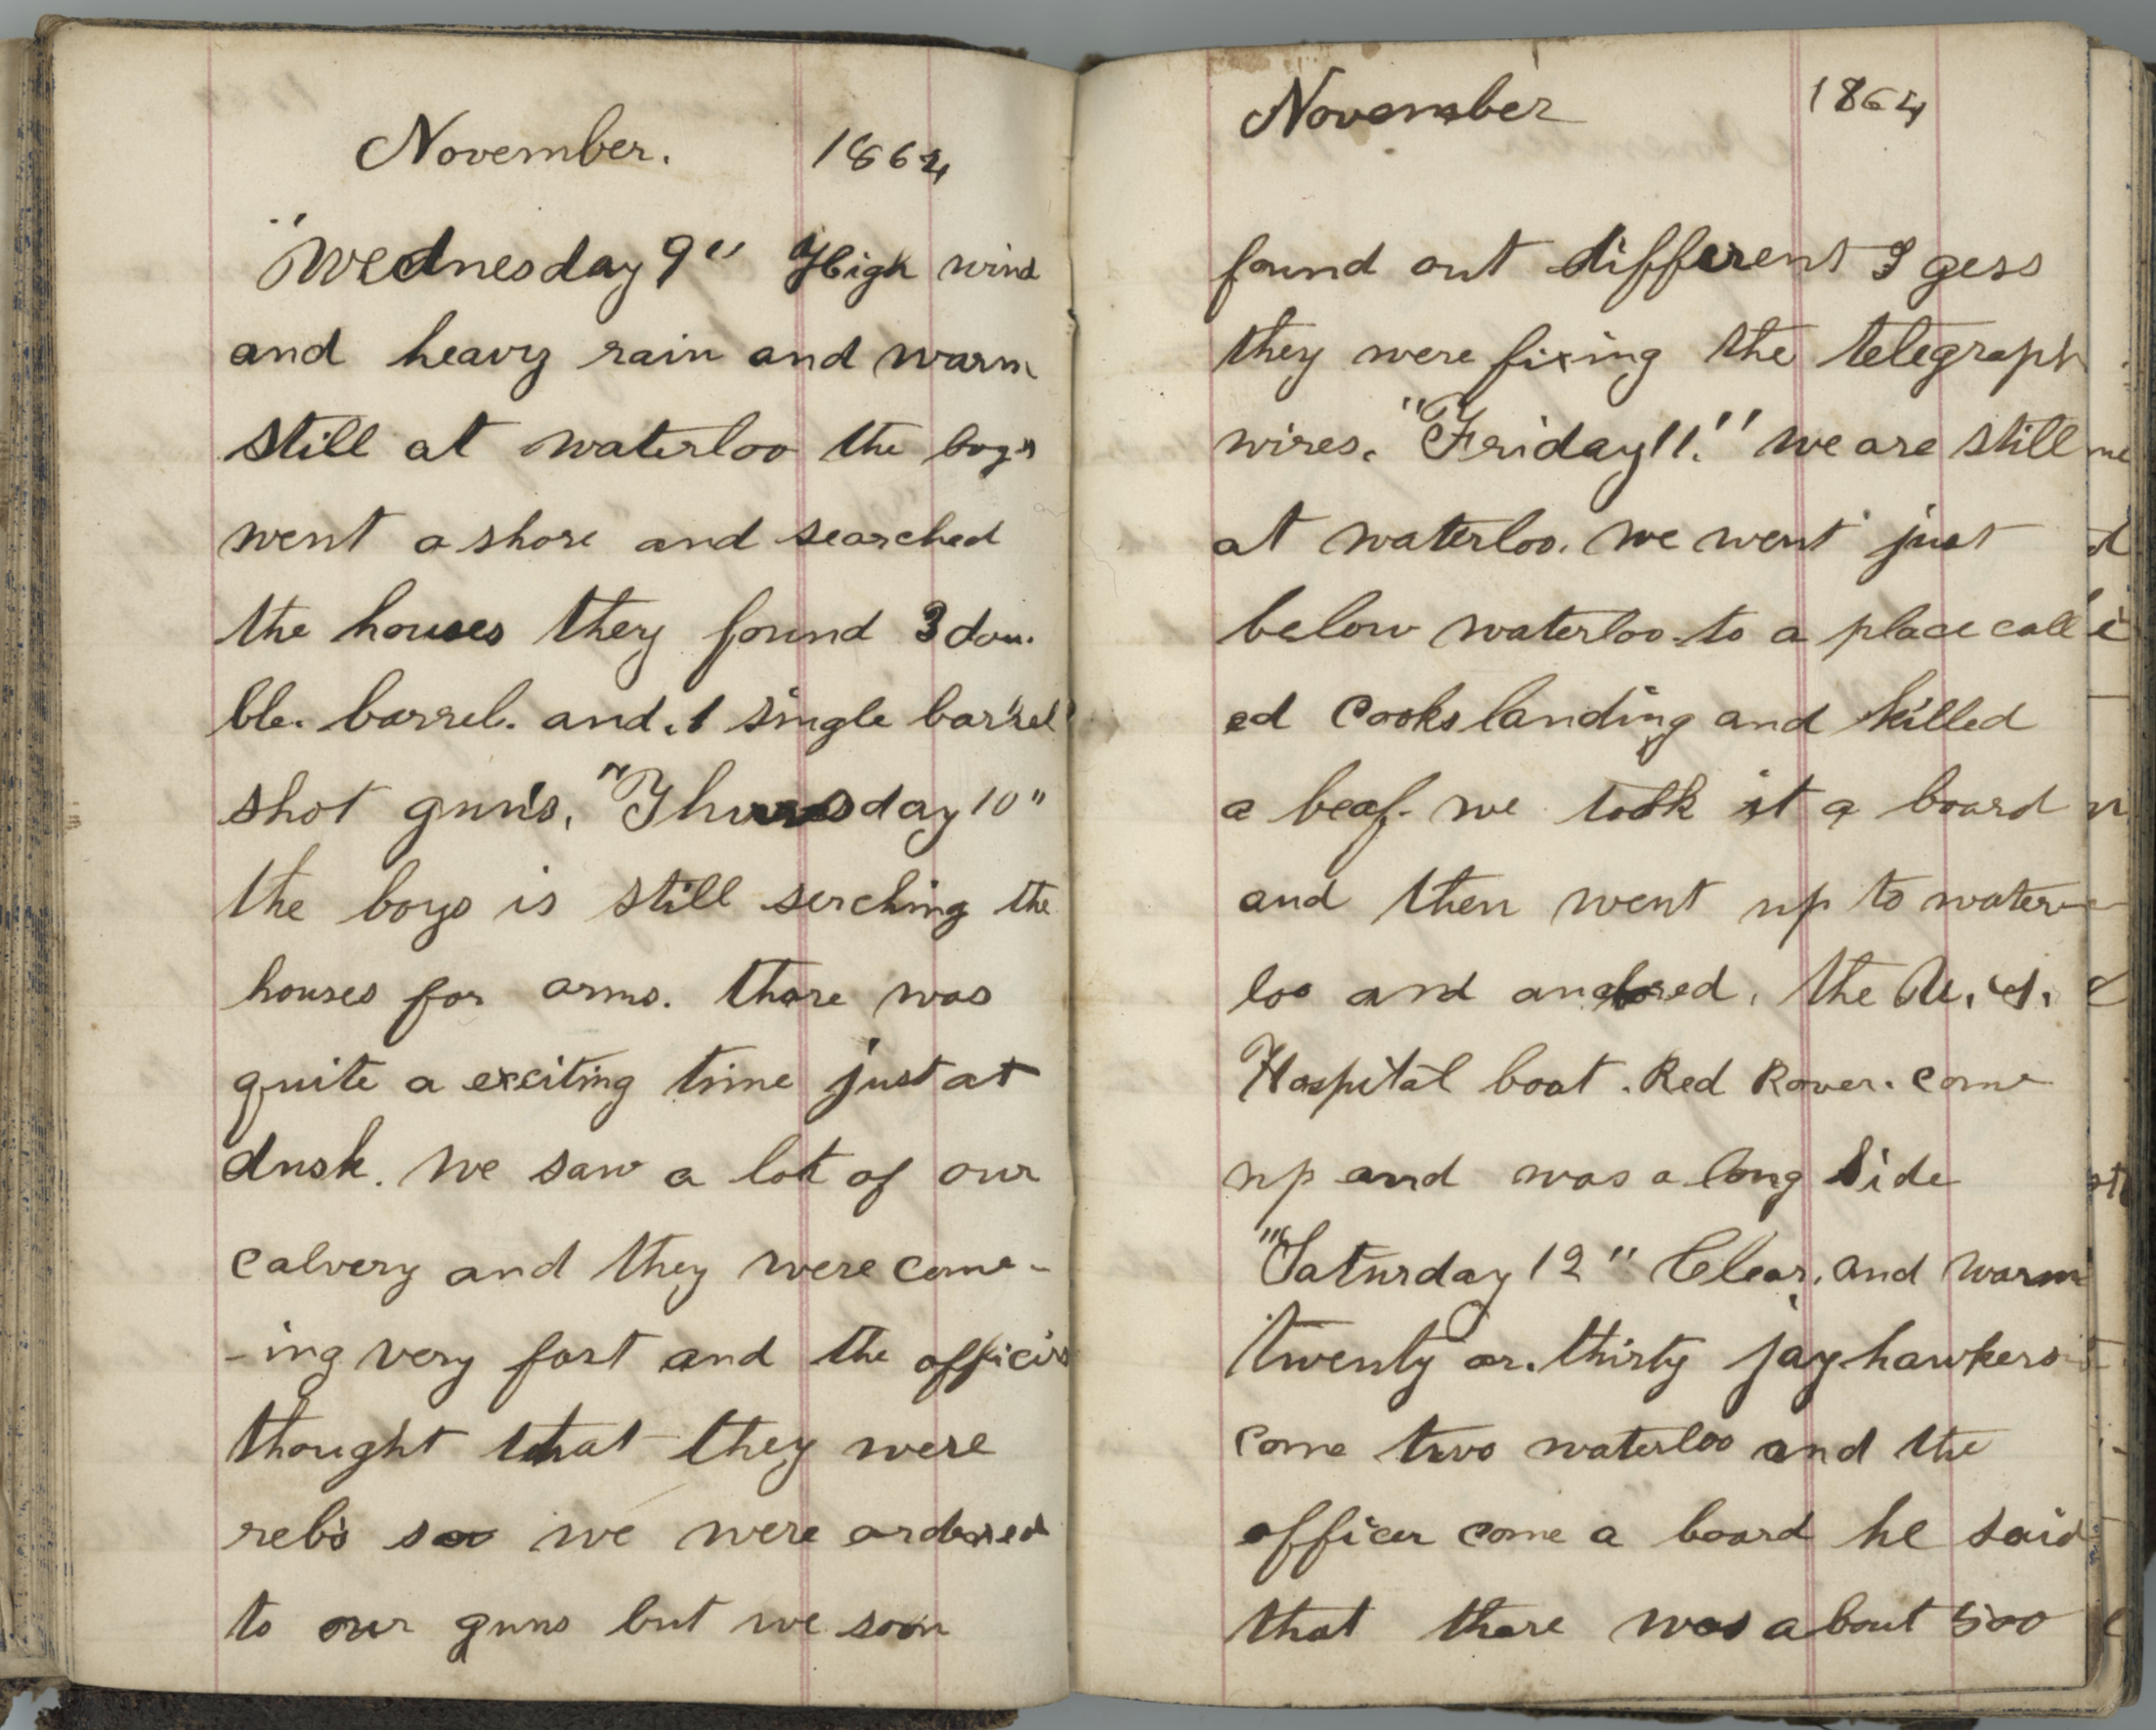 November. 1864
"Wednesday 9" High wind
and heavy rain and warm
still at waterloo the boys
went a shore and searched
the houses they found 3 dou.
ble. barrel. and. 1 single barrel
shot gun's. "Thursday 10"
the boys is still serching the
houses for arms. thare was
quite a exciting time just at
dusk. we saw a lot of our
calvery and they were come-
-ing very fast and the officirs
thought that they were
reb's so we were ordered
to our guns but we soon
November 1864
found out different I gess
they were fixing the telegraph
wires. "Friday 11." we are still
at waterloo. we went just
below waterloo to a place call
ed Cooks landing and killed
a beaf. we took it a board
and then went up to water-
loo and anchored. the U. S.
Hospital boat. Red Rover. come
up and was a long side
"Saturday 12" Clear. and warm
twenty or. thirty jay hawkers
come two waterloo and the
officer come a board he said
that thare was about 500